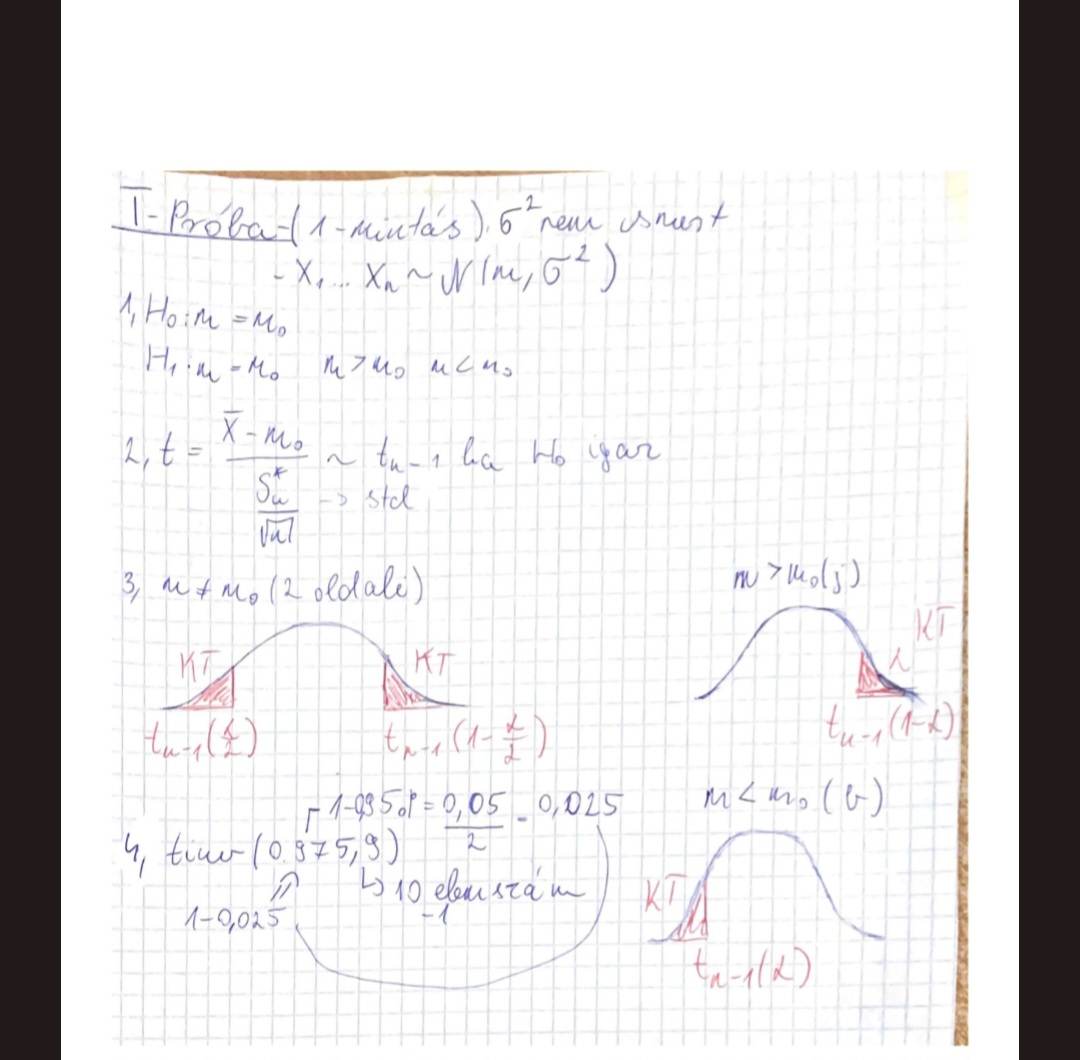 T-Próba-(1-mintás). σ² nem ismert
- X₁... Xₙ ~ N(m, σ²)
1, H₀: m = m₀
H₁: m = m₀ m > m₀ m < m₀
2, t = (X̄ - m₀) / (Sₙ* / √n) ~ tₙ₋₁ ha H₀ igaz
→ std
3, m ≠ m₀ (2 oldali)
KT KT
tₙ₋₁(α/2) tₙ₋₁(1-α/2)
m > m₀ (j)
KT
α
tₙ₋₁(1-α)
1-0,95 = 0,05/2 = 0,025
4, tinv(0.975,9)
↳ 10 elemszám
-1
1-0,025
m < m₀ (b)
KT
tₙ₋₁(α)